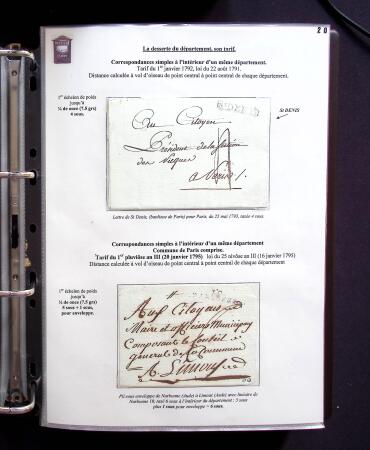 20
La desserte du département, son tarif.
Correspondances simples à l'intérieur d'un même département.
Tarif du 1er janvier 1792, loi du 22 août 1791.
Distance calculée à vol d'oiseau de point central à point central de chaque département.
1er échelon de poids
jusqu'à
¼ de once (7.5 grs)
4 sous.
St DENIS
Au Citoyen
Président de la Section
des Piques
a Paris
Lettre de St Denis, (banlieue de Paris) pour Paris, du 23 mai 1793, taxée 4 sous.
Correspondances simples à l'intérieur d'un même département
Commune de Paris comprise.
Tarif du 1er pluviôse an III (20 janvier 1795) loi du 25 nivôse an III (16 janvier 1795)
Distance calculée à vol d'oiseau de point central à point central de chaque département
1er échelon de poids
jusqu'à
¼ de once (7.5 grs)
5 sous + 1 sous,
pour enveloppe.
Aux Citoyens
Maire et officiers Municipaux
Composant le Conseil
général de la Commune
A Limoux
Pli sous enveloppe de Narbonne (Aude) à Limoux (Aude) avec linéaire de
Narbonne 10, taxé 6 sous à l'intérieur du département : 5 sous
plus 1 sous pour enveloppe = 6 sous.